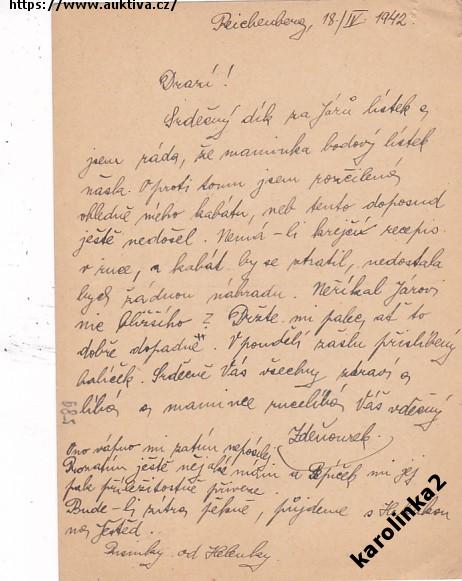 https://www.auktiva.cz/
Reichenberg, 18./IV. 1942.
Drazí!
Srdečný dík za Járů lístek a
jsem ráda, že maminka bodový lístek
našla. Oproti tomu jsem rozčilená
ohledně mého kabátu, neb tento doposud
ještě nedošel. Nemá-li krejčí recepis
v ruce, a kabát by se ztratil, nedostala
bych žádnou náhradu. Neříkal Jarovi
nic bližšího? Držte mi palec, ať to
dobře dopadně. V pondělí zašlu přislíbený
balíček. Srdečně Vás všechny zdraví a
líbá a mamince rucelíbá Váš vděčný
Zdenourek.
Ono vápno mi zatím neposílej
Prozatím ještě nějaké mám a Pepíček mi jej
pak příležitostně přiveze.
Bude-li zítra pěkně, půjdeme s
na Ještěd.
Pusinky od Helenky.
589
karolinka2